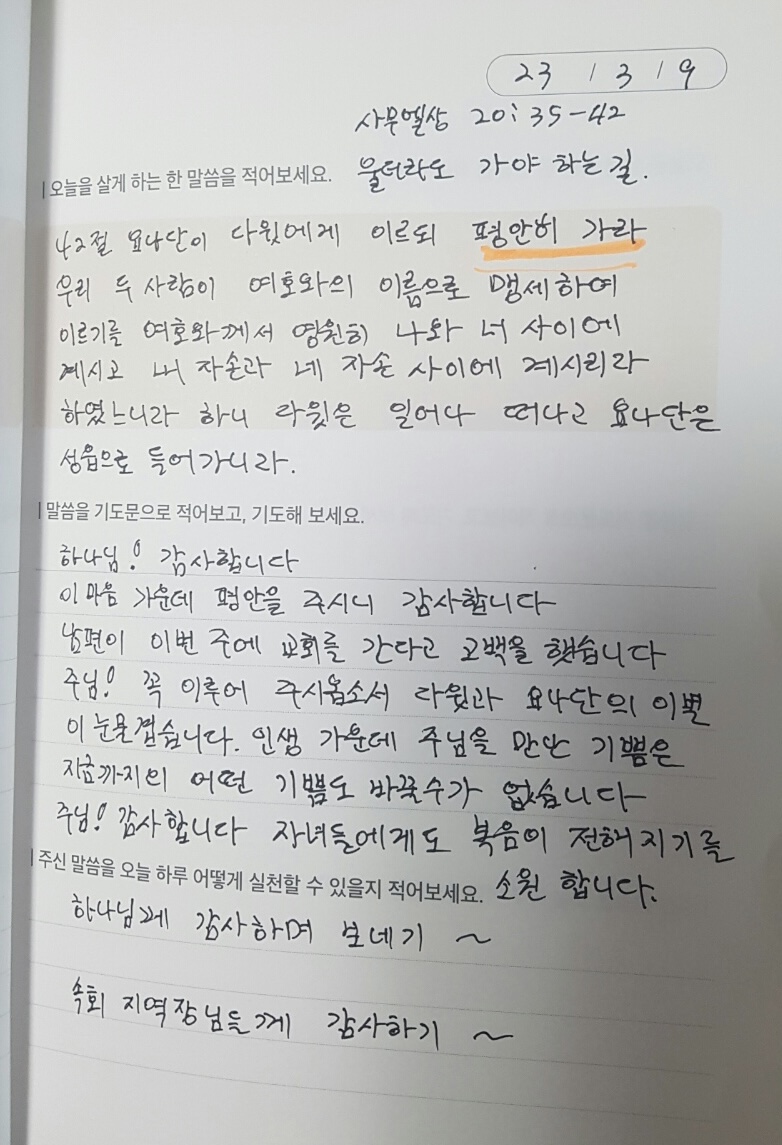 23 / 3 / 9
사무엘상 20:35-42
울더라도 가야 하는 길.
| 오늘을 살게 하는 한 말씀을 적어보세요.
42절 요나단이 다윗에게 이르되 평안히 가라
우리 두 사람이 여호와의 이름으로 맹세하여
이르기를 여호와께서 영원히 나와 너 사이에
계시고 내 자손과 네 자손 사이에 계시리라
하였느니라 하니 다윗은 일어나 떠나고 요나단은
성읍으로 들어가니라.
| 말씀을 기도문으로 적어보고, 기도해 보세요.
하나님! 감사합니다
이 마음 가운데 평안을 주시니 감사합니다
남편이 이번 주에 교회를 간다고 고백을 했습니다
주님! 꼭 이루어 주시옵소서 다윗과 요나단의 이별
이 눈물겹습니다. 인생 가운데 주님을 만난 기쁨은
지금까지의 어떤 기쁨도 바꿀수가 없습니다
주님! 감사합니다 자녀들에게도 복음이 전해지기를
소원 합니다.
| 주신 말씀을 오늘 하루 어떻게 실천할 수 있을지 적어보세요.
하나님께 감사하며 보내기 ~
속회 지역장님들께 감사하기 ~